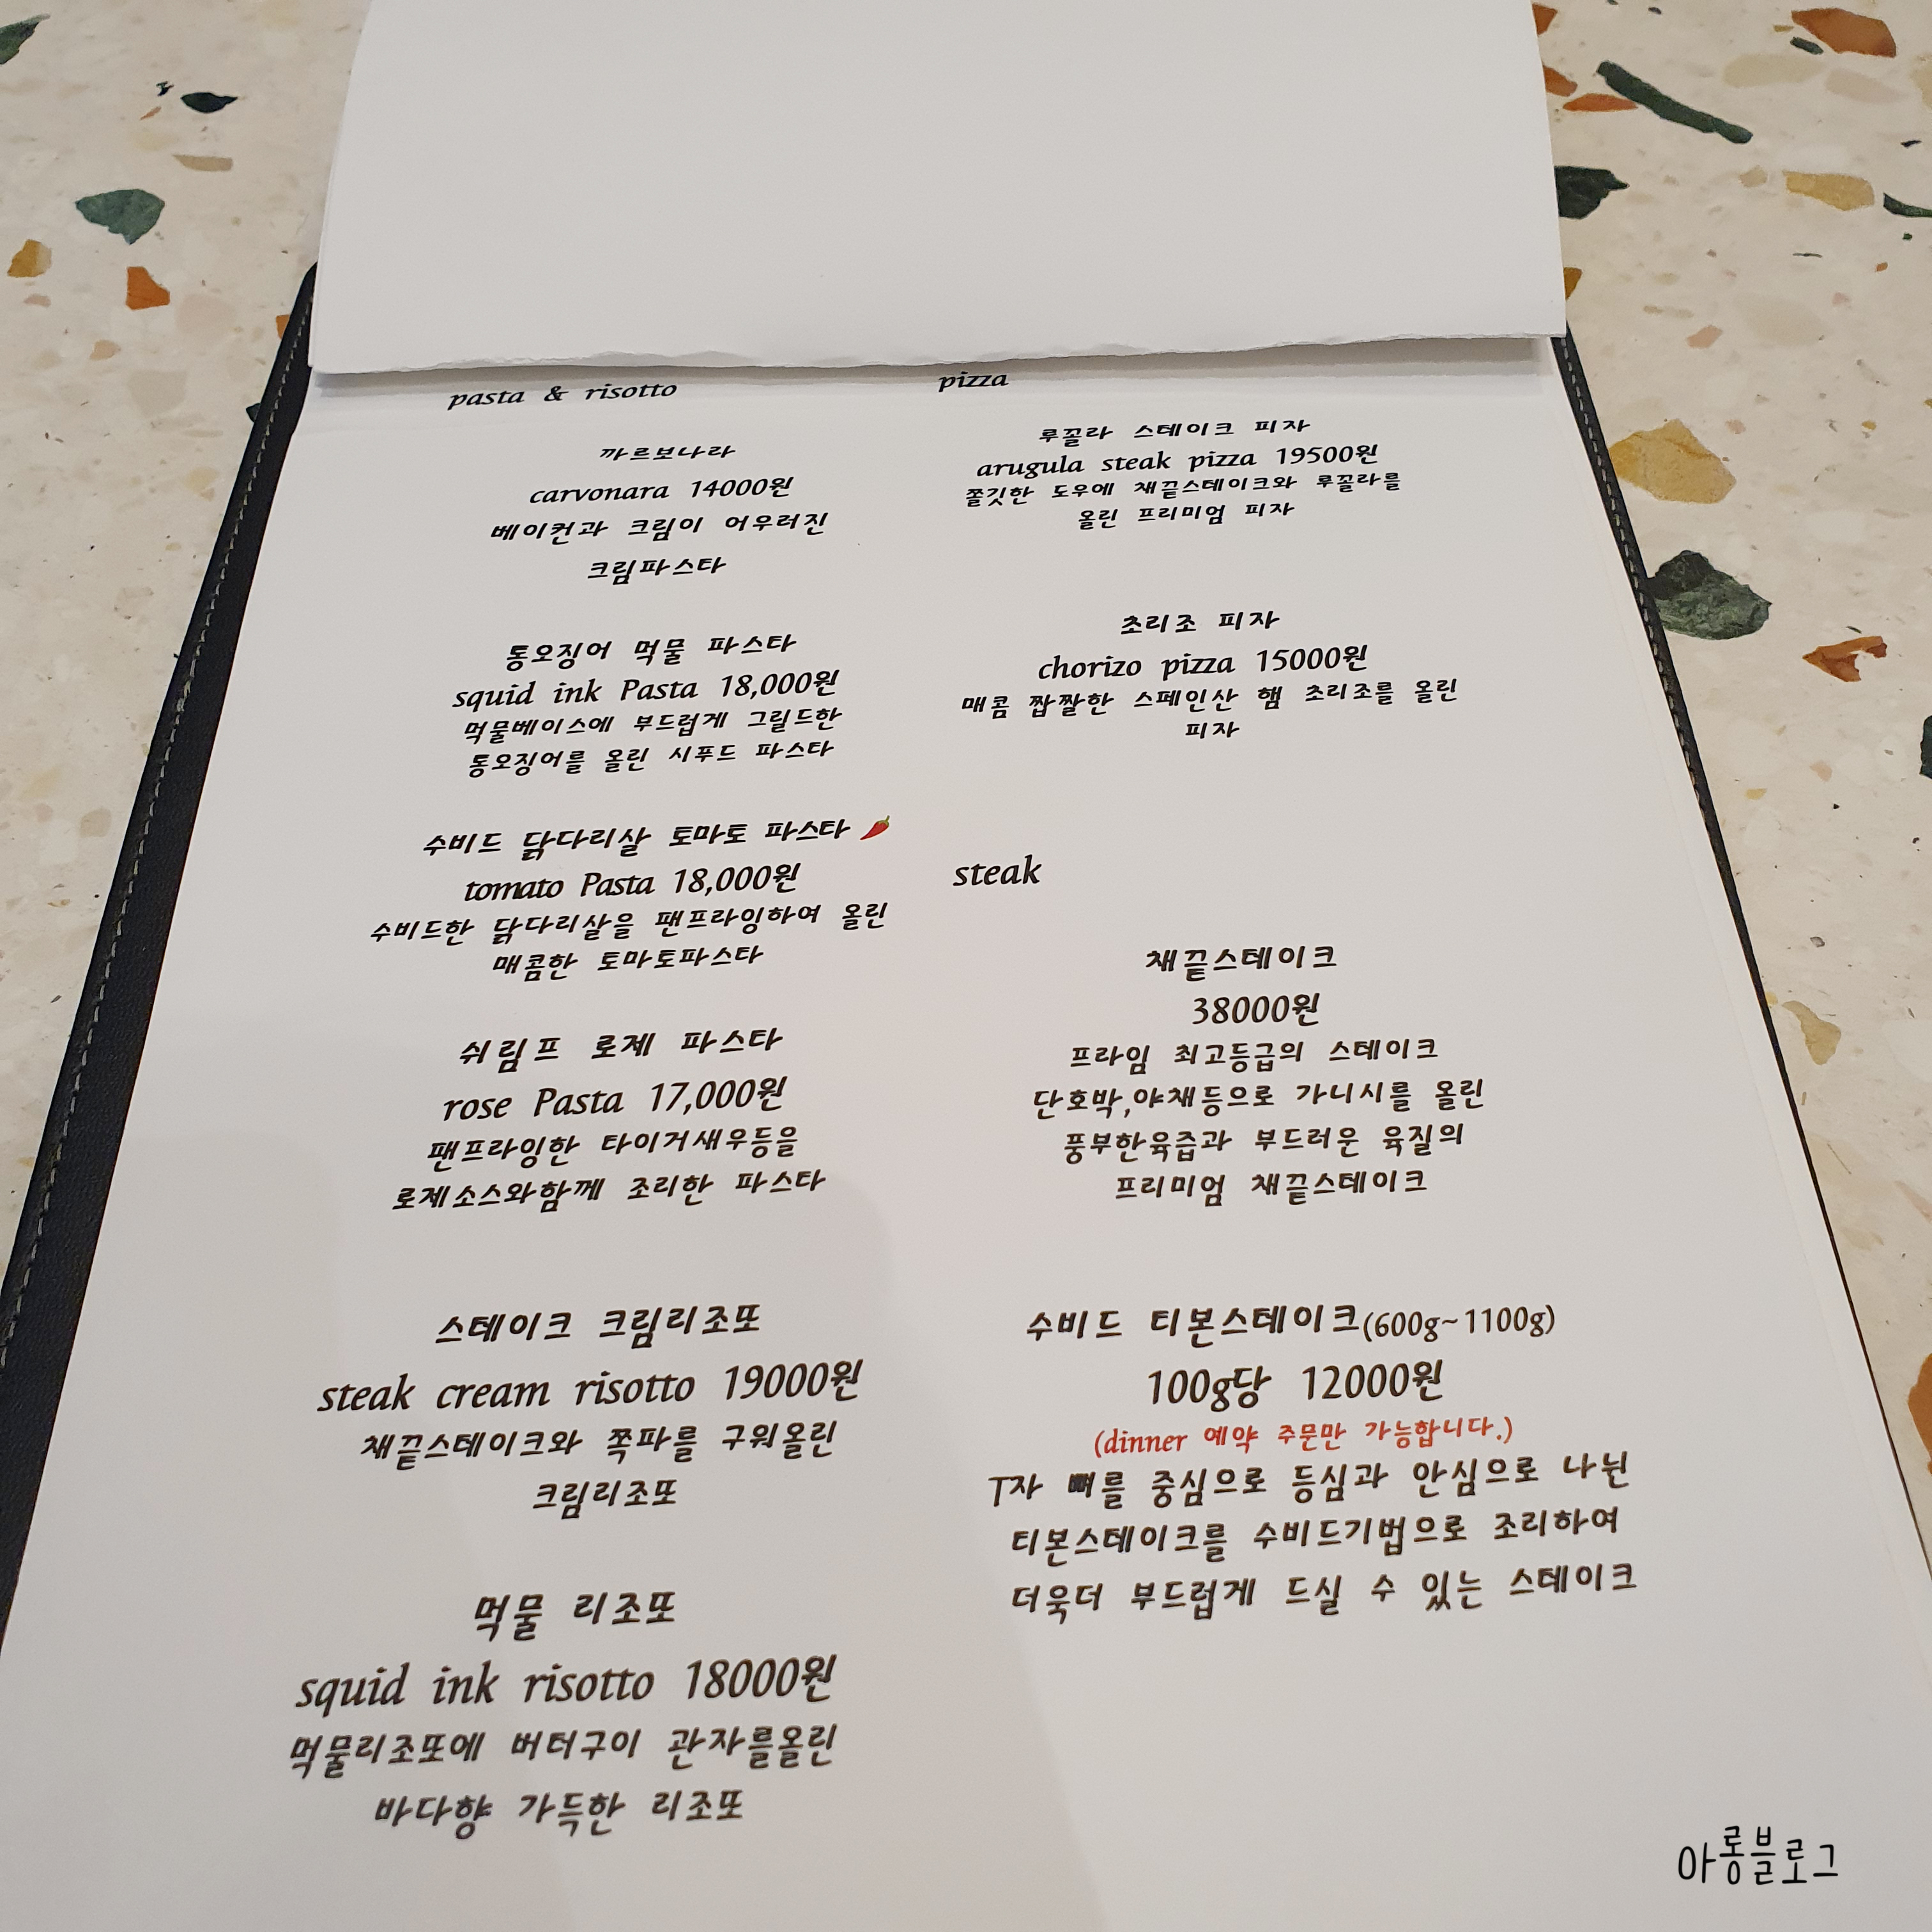 pasta & risotto
까르보나라
carvonara 14000원
베이컨과 크림이 어우러진
크림파스타
통오징어 먹물 파스타
squid ink Pasta 18,000원
먹물베이스에 부드럽게 그릴드한
통오징어를 올린 시푸드 파스타
수비드 닭다리살 토마토 파스타
tomato Pasta 18,000원
수비드한 닭다리살을 팬프라잉하여 올린
매콤한 토마토파스타
쉬림프 로제 파스타
rose Pasta 17,000원
팬프라잉한 타이거새우등을
로제소스와함께 조리한 파스타
스테이크 크림리조또
steak cream risotto 19000원
채끝스테이크와 쪽파를 구워올린
크림리조또
먹물 리조또
squid ink risotto 18000원
먹물리조또에 버터구이 관자를올린
바다향 가득한 리조또
pizza
루꼴라 스테이크 피자
arugula steak pizza 19500원
쫄깃한 도우에 채끝스테이크와 루꼴라를
올린 프리미엄 피자
초리조 피자
chorizo pizza 15000원
매콤 짭짤한 스페인산 햄 초리조를 올린
피자
steak
채끝스테이크
38000원
프라임 최고등급의 스테이크
단호박,야채등으로 가니시를 올린
풍부한육즙과 부드러운 육질의
프리미엄 채끝스테이크
수비드 티본스테이크(600g~1100g)
100g당 12000원
(dinner 예약 주문만 가능합니다.)
T자 뼈를 중심으로 등심과 안심으로 나뉜
티본스테이크를 수비드기법으로 조리하여
더욱더 부드럽게 드실 수 있는 스테이크
아롱블로그